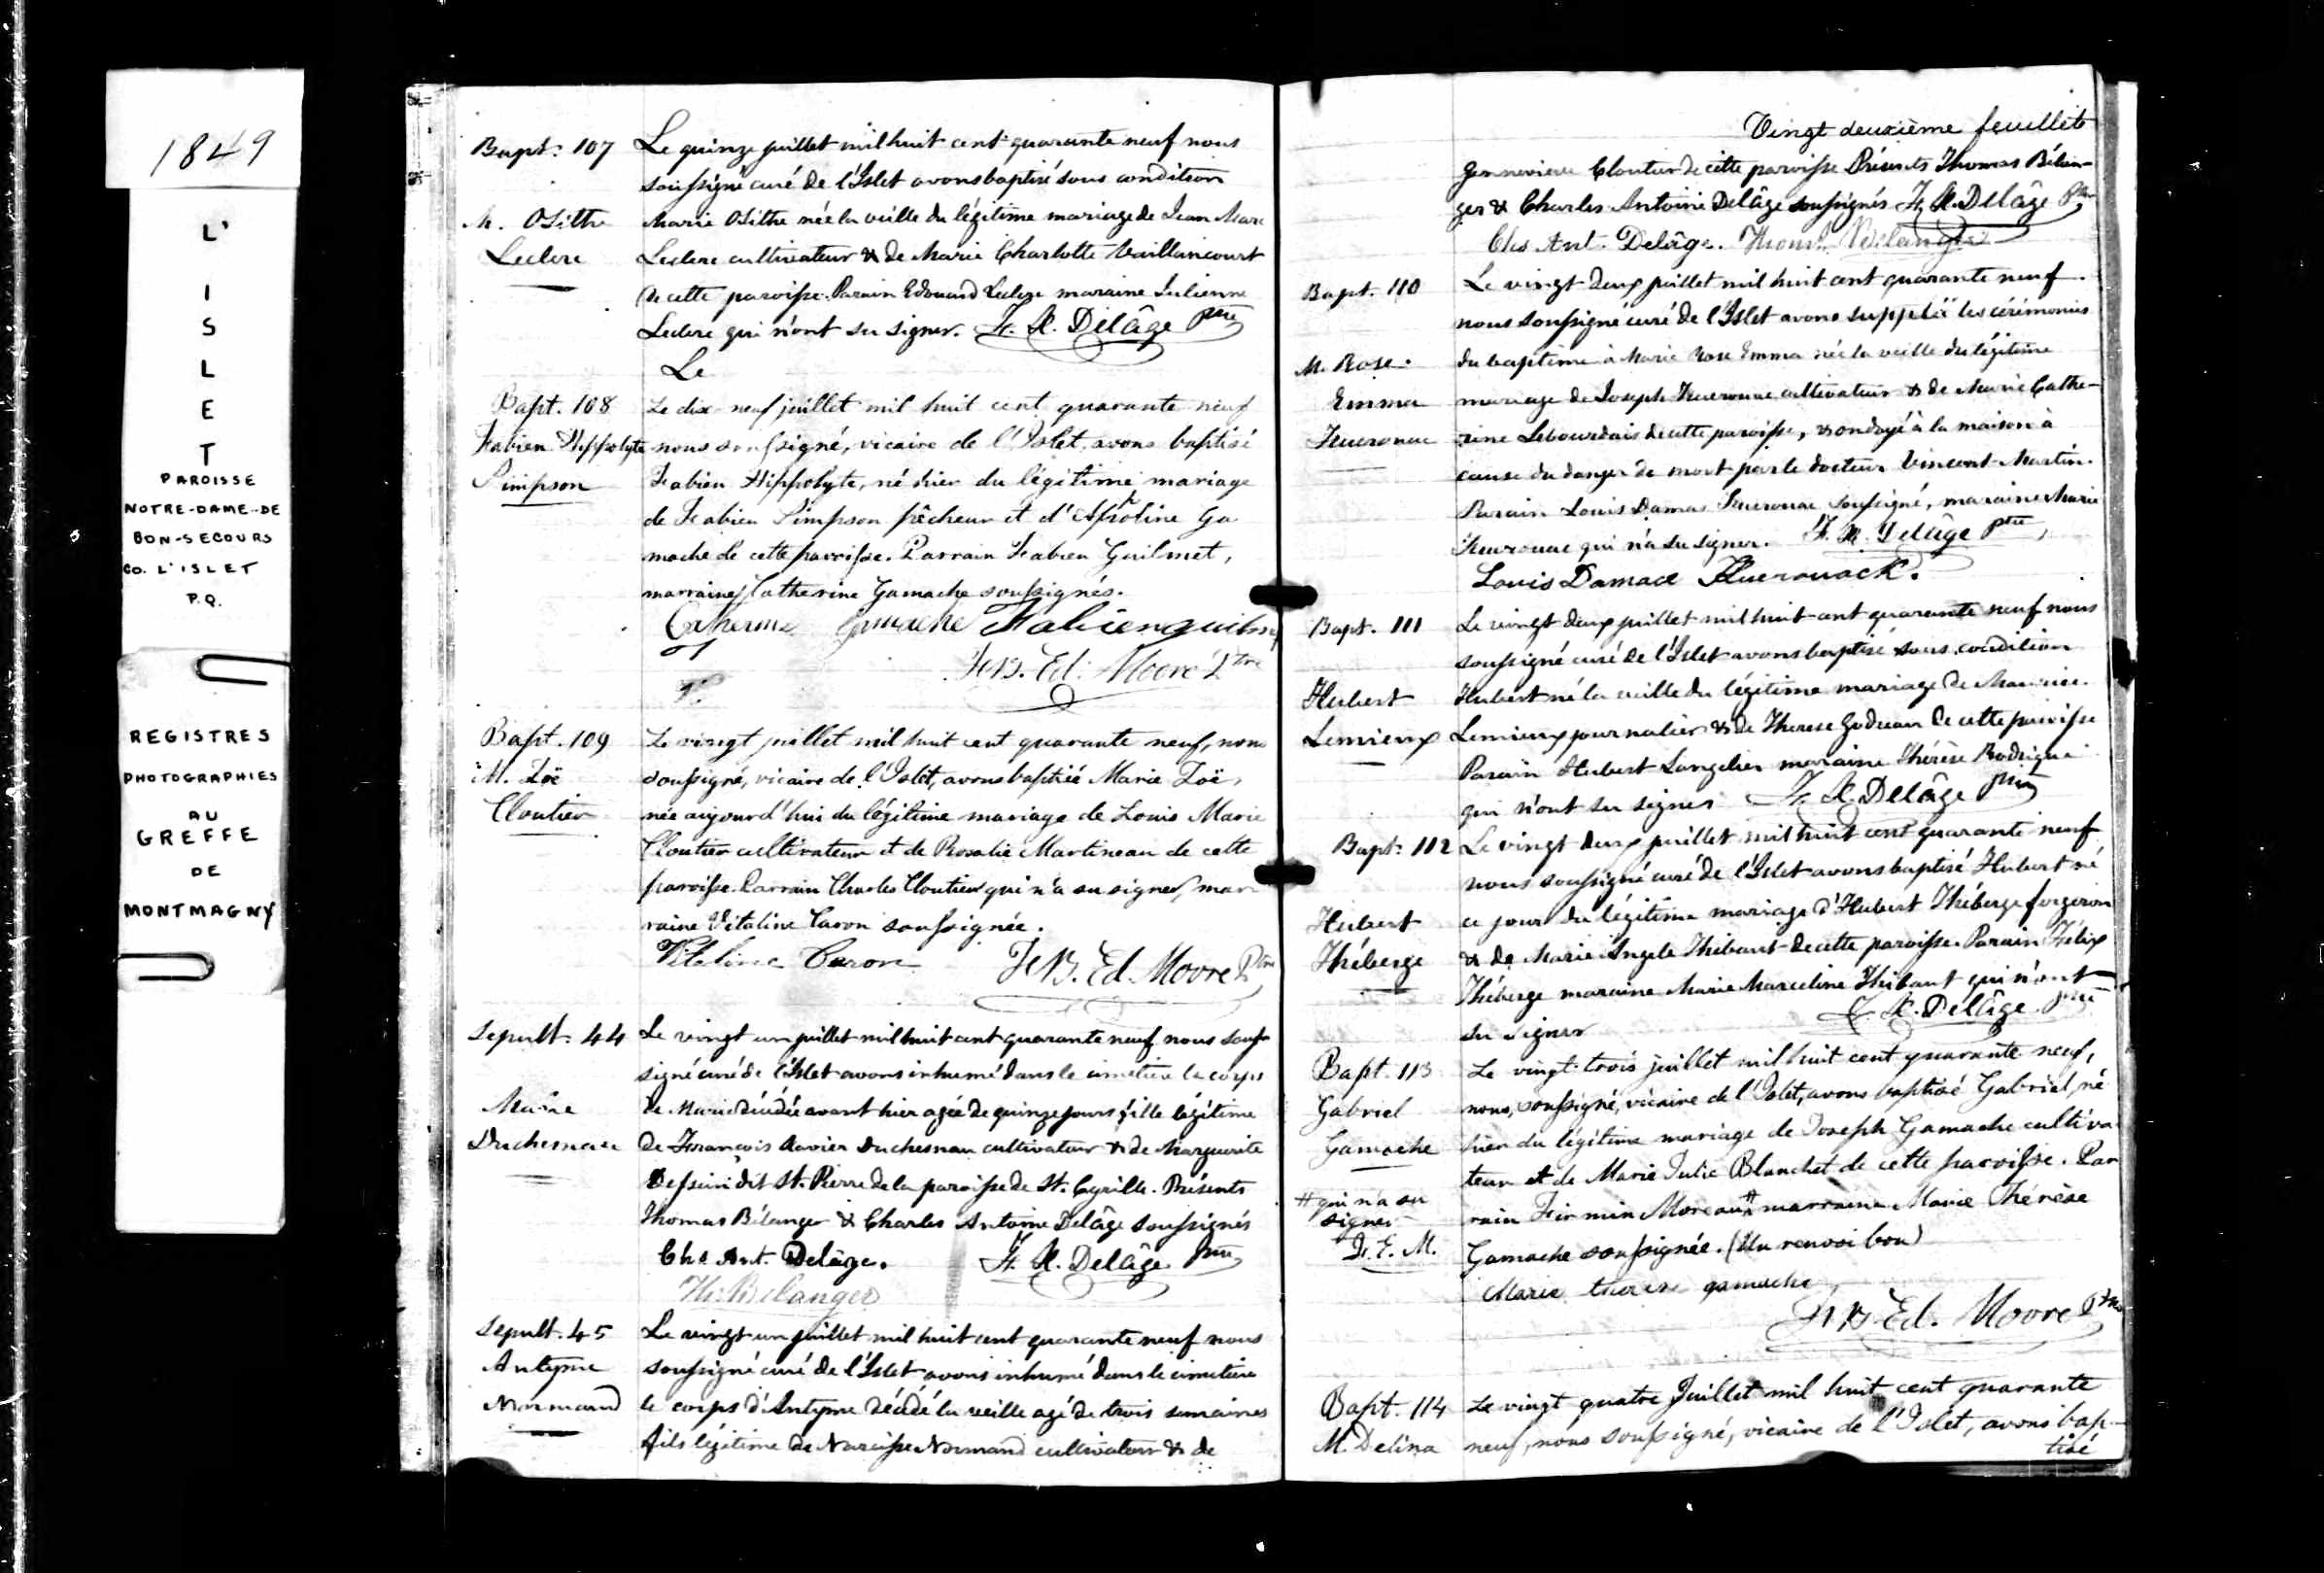 1849
L'
I
S
L
E
T
PAROISSE
NOTRE-DAME-DE
BON-SECOURS
CO. L'ISLET
P.Q.
REGISTRES
PHOTOGRAPHIES
AU
GREFFE
DE
MONTMAGNY
Bapt: 107
M. Osithe
Leclerc
Le quinze juillet mil huit cent quarante neuf nous
soussigné curé de l'Islet avons baptisé sous condition
Marie Osithe née la veille du légitime mariage de Jean Marc
Leclerc cultivateur & de Marie Charlotte Vaillancourt
de cette paroisse. Parain Edouard Leclerc maraine Julienne
Leclerc qui n'ont su signer. F. X. Delâge Ptre
Le
Bapt. 108
Fabien Hippolyte
Simpson
Le dix-neuf juillet mil huit cent quarante neuf
nous soussigné, vicaire de l'Islet avons baptisé
Fabien Hippolyte, né hier du légitime mariage
de Fabien Simpson pêcheur et d'Apoline Ga
mache de cette paroisse. Parrain Fabien Guilmet,
marraine Catherine Gamache soussignés.
Catherine Gamache Fabien guilmet
F. B. Ed. Moore Ptre
Bapt. 109
M. Zoë
Cloutier
Le vingt juillet mil huit cent quarante neuf, nous
soussigné, vicaire de l'Islet, avons baptisé Marie Zoë,
née aujourd'hui du légitime mariage de Louis Marie
Cloutier cultivateur et de Rosalie Martineau de cette
paroisse. Parrain Charles Cloutier qui n'a su signer, mar
raine Vitaline Caron soussignée.
Vitaline Caron F. B. Ed. Moore Ptre
Sepult. 44
Marie
Duchesneau
Le vingt un juillet mil huit cent quarante neuf nous sous
signé curé de l'Islet avons inhumé dans le cimetière le corps
de Marie décédée avant hier agée de quinze jours fille légitime
de François Xavier Duchesnau cultivateur & de Marguerite
Dessein dit St. Pierre de la paroisse de St. Cyrille. Présents
Thomas Bélanger & Charles Antoine Delâge soussignés
Chs Ant. Delâge. F. X. Delâge Ptre
Th. Bélanger
Sepult. 45
Antyme
Normand
Le vingt un juillet mil huit cent quarante neuf nous
soussigné curé de l'Islet avons inhumé dans le cimetière
le corps d'Antyme décédé la veille agé de trois semaines
fils légitime de Narcisse Normand cultivateur & de
Vingt deuxième feuillets
Gennevieve Cloutier de cette paroisse Présents Thomas Bélan-
ger & Charles Antoine Delâge soussignés F. X. Delâge Ptre
Chs Ant. Delâge. Thomas Bélanger
Bapt. 110
M. Rose
Emma
Keurouac
Le vingt deux juillet mil huit cent quarante neuf
nous soussigné curé de l'Islet avons suppléé les cérémonies
du baptême à Marie Rose Emma née la veille du légitime
mariage de Joseph Keurouac cultivateur & de Marie Cathe-
rine Lebourdais de cette paroisse, & ondoyé à la maison à
cause du danger de mort par le docteur Vincent Martin.
Parain Louis Damas Keurouac soussigné, maraine Marie
Keurouac qui n'a su signer. F. X. Delâge Ptre
Louis Damace Kuerouack.
Bapt. 111
Hubert
Lemieux
Le vingt deux juillet mil huit cent quarante neuf nous
soussigné curé de l'Islet avons baptisé sous condition
Hubert né la veille du légitime mariage de Maurice
Lemieux journalier & de Therese Godreau de cette paroisse
Parain Hubert Langelier maraine Thérèse Rodrigue
qui n'ont su signer F. X. Delâge Ptre
Bapt: 112
Hubert
Théberge
Le vingt deux juillet mil huit cent quarante neuf
nous soussigné curé de l'Islet avons baptisé Hubert né
ce jour du légitime mariage d'Hubert Théberge forgeron
& de Marie Angele Thibaut de cette paroisse. Parain Félix
Théberge maraine Marie Marceline Thibaut qui n'ont
su signer F. X. Delâge Ptre
Bapt. 113
Gabriel
Gamache
# qui n'a su
signer
F. E. M.
Le vingt-trois juillet mil huit cent quarante neuf,
nous, soussigné, vicaire de l'Islet, avons baptisé Gabriel, né
hier du légitime mariage de Joseph Gamache cultiva
teur et de Marie Julie Blanchet de cette paroisse. Par
rain Firmin Moreau # marraine Marie Thérèse
Gamache soussignée. (Un renvoi bon)
Marie therese gamache
F. B. Ed. Moore Ptre
Bapt. 114
M. Delina
Le vingt quatre Juillet mil huit cent quarante
neuf, nous soussigné, vicaire de l'Islet, avons bap-
tisé